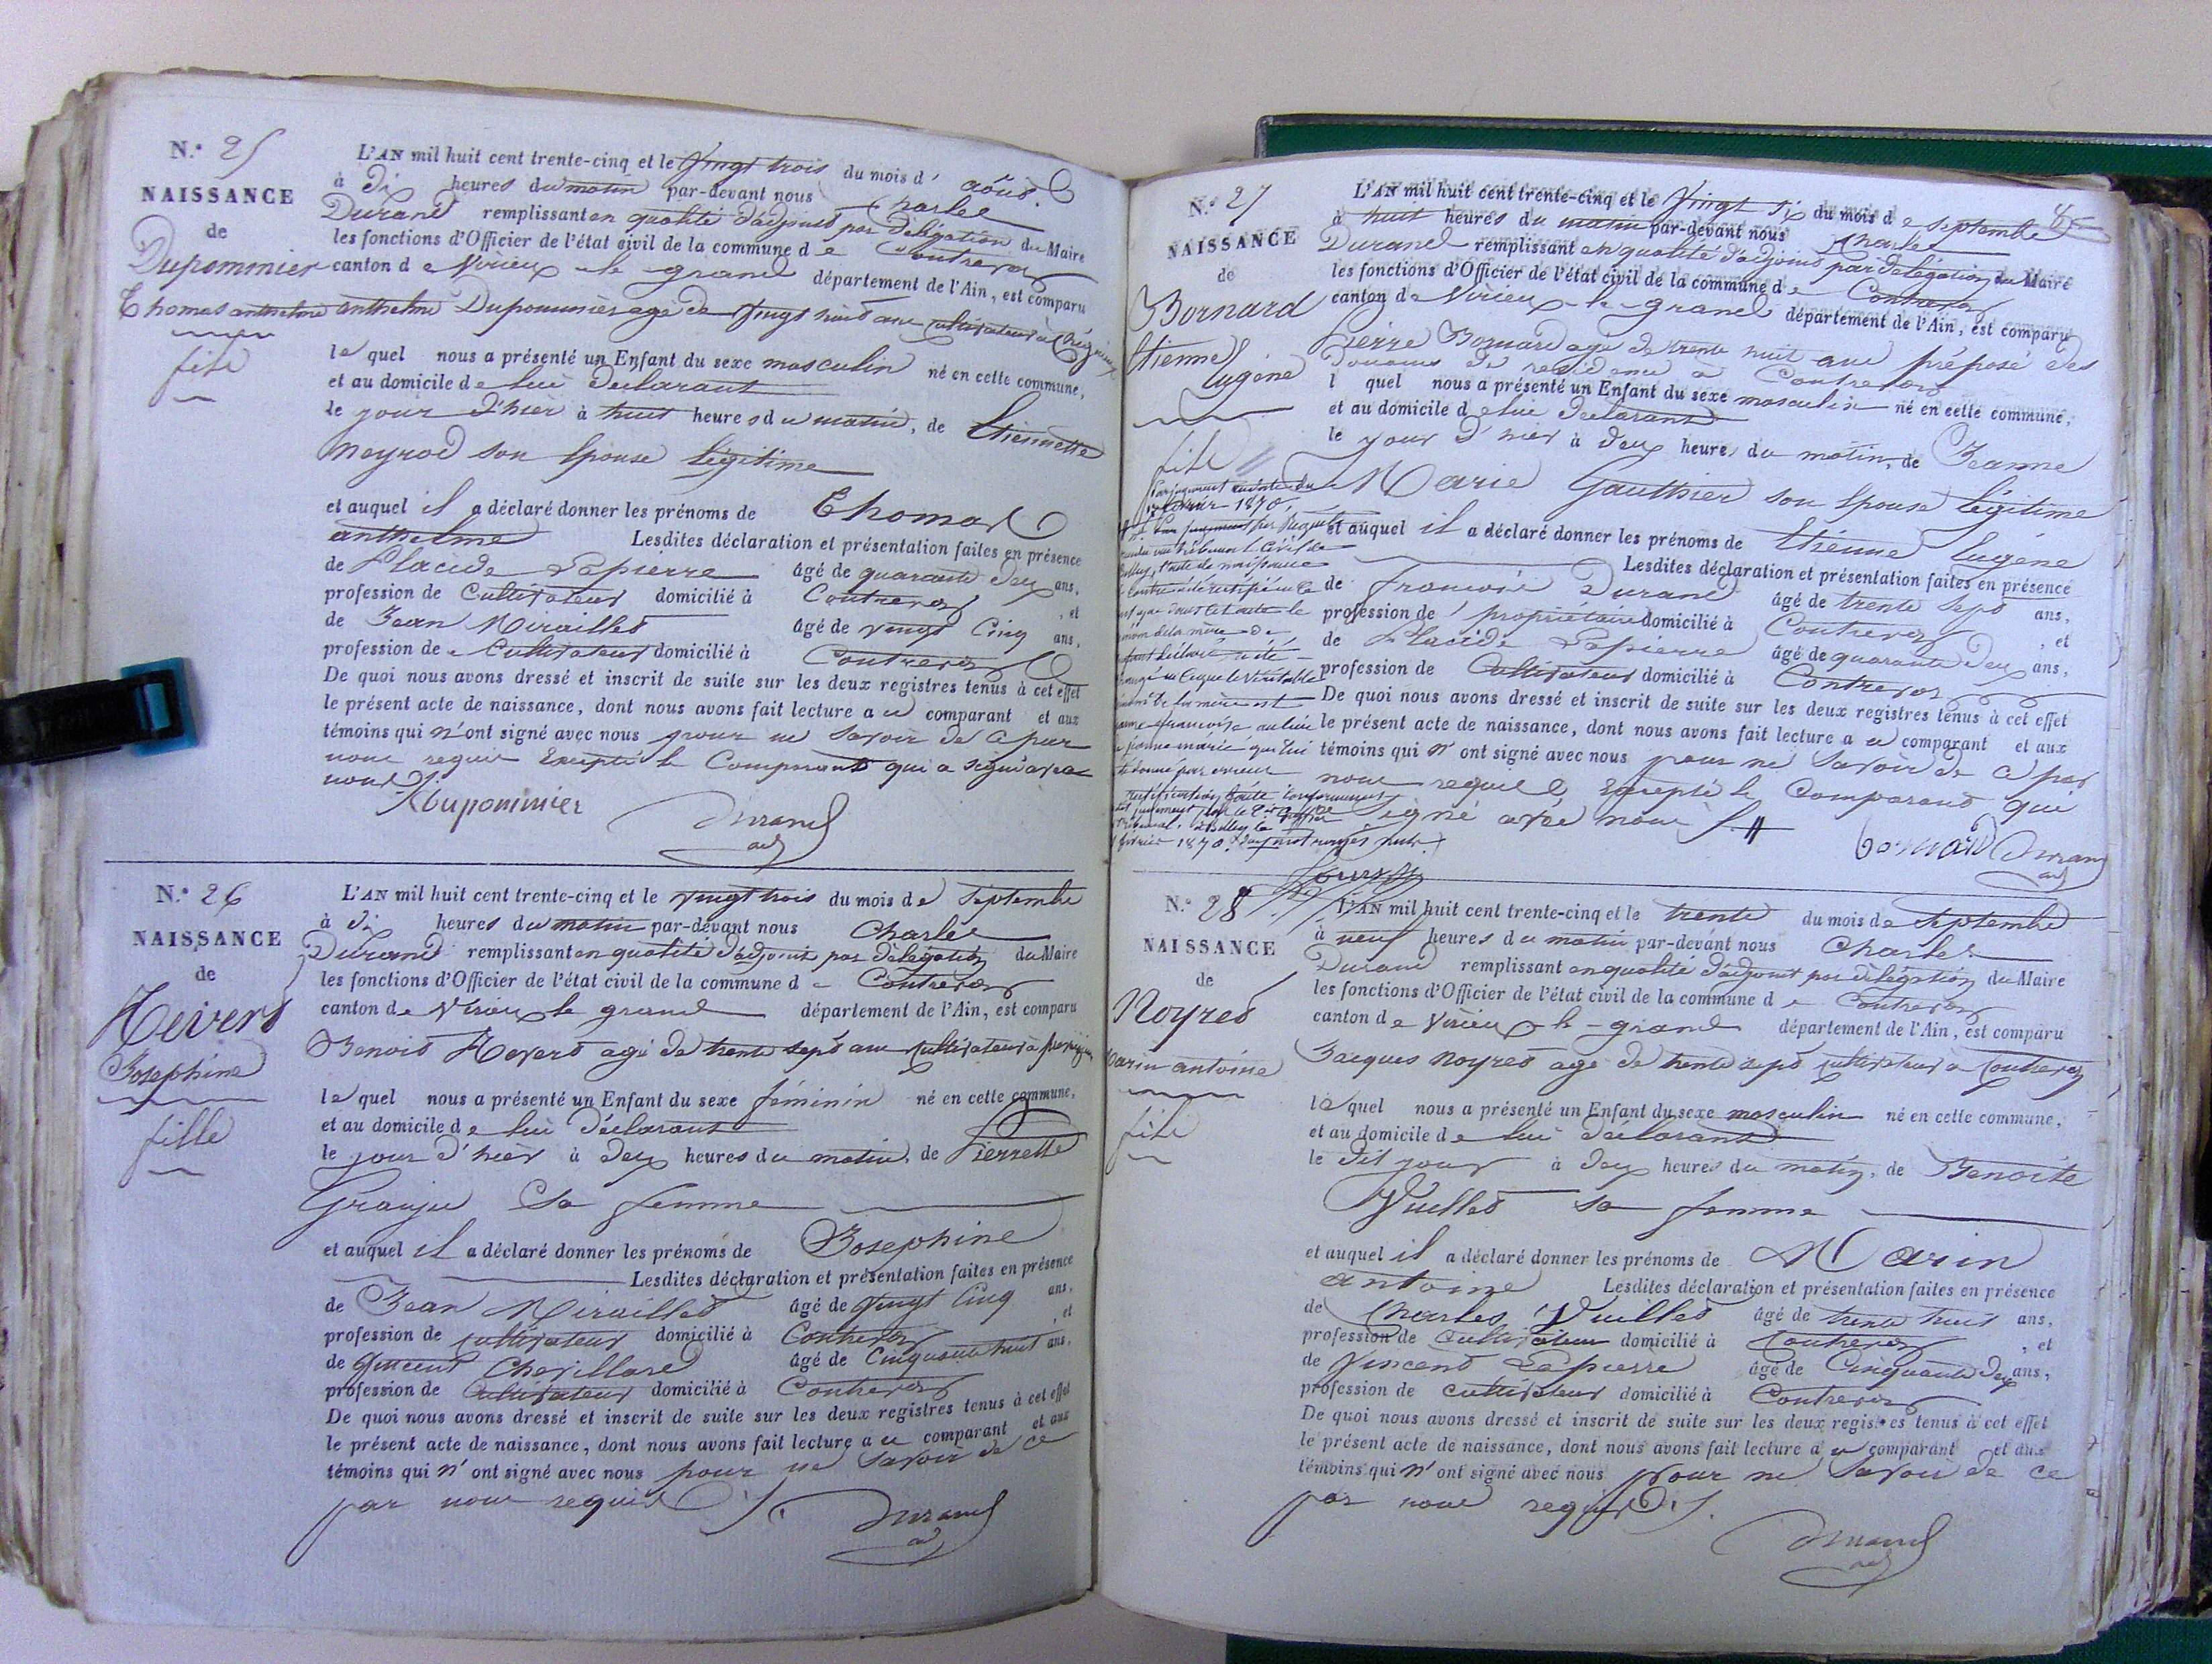 N.° 25
NAISSANCE
de
Dupommier
Thomas anthelme
fils
L'AN mil huit cent trente-cinq et le vingt trois du mois d' août
à dix heures du matin par-devant nous Charles
Durand remplissant en qualité d'adjoint par délégation du Maire
les fonctions d'Officier de l'état civil de la commune de Contrevoz
canton de Virieux-le-grand département de l'Ain, est comparu
anthelme Dupommier agé de vingt huit ans cultivateur à
lequel nous a présenté un Enfant du sexe masculin né en cette commune,
et au domicile de lui déclarant
le jour d'hier à huit heures du matin, de Etiennette
Neyrod son épouse légitime
et auquel il a déclaré donner les prénoms de Thomas
anthelme Lesdites déclaration et présentation faites en présence
de Placide Lapierre âgé de quarante deux ans,
profession de Cultivateur domicilié à Contrevoz, et
de Jean Miraillet âgé de vingt Cinq ans,
profession de Cultivateur domicilié à Contrevoz
De quoi nous avons dressé et inscrit de suite sur les deux registres tenus à cet effet
le présent acte de naissance, dont nous avons fait lecture au comparant et aux
témoins qui n'ont signé avec nous pour ne savoir de ce par
nous requis Excepté le Comparant qui a signé avec
nous
Dupommier
Durand
adj
N.° 26
NAISSANCE
de
Hevert
Josephine
fille
L'AN mil huit cent trente-cinq et le vingt trois du mois de septembre
à dix heures du matin par-devant nous Charles
Durand remplissant en qualité d'adjoint par délégation du Maire
les fonctions d'Officier de l'état civil de la commune de Contrevoz
canton de Virieux le grand département de l'Ain, est comparu
Benoit Hevert agé de trente sept ans cultivateur à
lequel nous a présenté un Enfant du sexe féminin né en cette commune,
et au domicile de lui déclarant
le jour d'hier à deux heures du matin, de Pierrette
Granju sa femme
et auquel il a déclaré donner les prénoms de Josephine
Lesdites déclaration et présentation faites en présence
de Jean Miraillet âgé de vingt Cinq ans,
profession de cultivateur domicilié à Contrevoz, et
de Vincent Chevillard âgé de Cinquante huit ans,
profession de Cultivateur domicilié à Contrevoz
De quoi nous avons dressé et inscrit de suite sur les deux registres tenus à cet effet
le présent acte de naissance, dont nous avons fait lecture au comparant et aux
témoins qui n'ont signé avec nous pour ne savoir de ce
par nous requis
Durand
adj
N.° 27
NAISSANCE
de
Bornard
Etienne
Eugène
fils
Par jugement en date du
février 1870
rendu au tribunal Civil de
Belley, l'acte de naissance
ci contre a été rectifié en ce
sens que dans cet acte le
prénom de la mère de
le véritable
prénom de la mère est
Jeanne françoise au lieu
de Jeanne marie qui lui
a été donné par erreur
rectification faite conformément
au jugement
tribunal, à Belley le
février 1870.
L'AN mil huit cent trente-cinq et le vingt six du mois de septembre
à huit heures du matin par-devant nous Charles
Durand remplissant en qualité d'adjoint par délégation du Maire
les fonctions d'Officier de l'état civil de la commune de Contrevoz
canton de Virieux-le-grand département de l'Ain, est comparu
Pierre Bornard agé de trente huit ans préposé des
douanes de résidence à Contrevoz
lquel nous a présenté un Enfant du sexe masculin né en cette commune,
et au domicile de lui déclarant
le jour d'hier à deux heures du matin, de Jeanne
Marie Gauthier son épouse légitime
et auquel il a déclaré donner les prénoms de Etienne Eugène
Lesdites déclaration et présentation faites en présence
de françois Durand âgé de trente sept ans,
profession de propriétaire domicilié à Contrevoz, et
de Placide Lapierre âgé de quarante deux ans,
profession de Cultivateur domicilié à Contrevoz
De quoi nous avons dressé et inscrit de suite sur les deux registres tenus à cet effet
le présent acte de naissance, dont nous avons fait lecture au comparant et aux
témoins qui n'ont signé avec nous pour ne savoir de ce par
nous requis Excepté le Comparant qui
signé avec nous
bornard Durand
adj
N.° 28
NAISSANCE
de
Noyret
Marin antoine
fils
L'AN mil huit cent trente-cinq et le trente du mois de septembre
à neuf heures du matin par-devant nous Charles
Durand remplissant en qualité d'adjoint par délégation du Maire
les fonctions d'Officier de l'état civil de la commune de Contrevoz
canton de Virieux-le-grand département de l'Ain, est comparu
Jacques Noyret agé de trente sept cultivateur à Contrevoz
lequel nous a présenté un Enfant du sexe masculin né en cette commune,
et au domicile de lui déclarant
le dit jour à deux heures du matin, de Benoite
Vuillet sa femme
et auquel il a déclaré donner les prénoms de Marin
antoine Lesdites déclaration et présentation faites en présence
de Charles Vuillet âgé de trente huit ans,
profession de Cultivateur domicilié à Contrevoz, et
de Vincent Lapierre âgé de Cinquante deux ans,
profession de cultivateur domicilié à Contrevoz
De quoi nous avons dressé et inscrit de suite sur les deux registres tenus à cet effet
le présent acte de naissance, dont nous avons fait lecture au comparant et aux
témoins qui n'ont signé avec nous pour ne savoir de ce
par nous requis
Durand
adj